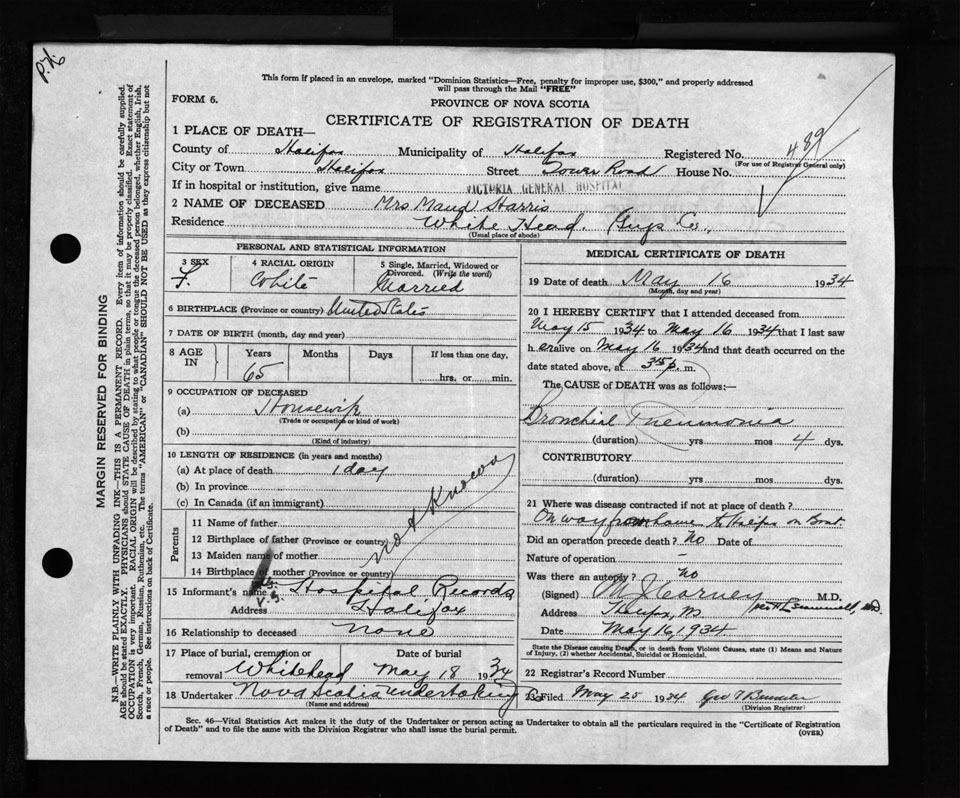 P.V.6
This form if placed in an envelope, marked "Dominion Statistics—Free, penalty for improper use, $300," and properly addressed
will pass through the Mail "FREE"
FORM 6.
PROVINCE OF NOVA SCOTIA
CERTIFICATE OF REGISTRATION OF DEATH
1 PLACE OF DEATH—
County of Halifax Municipality of Halifax Registered No. 489
(For use of Registrar General only)
City or Town Halifax Street Tower Road House No.
If in hospital or institution, give name VICTORIA GENERAL HOSPITAL
2 NAME OF DECEASED Mrs Maud Harris
Residence White Head, Guys Co.,
(Usual place of abode)
PERSONAL AND STATISTICAL INFORMATION
3 SEX F.
4 RACIAL ORIGIN White
5 Single, Married, Widowed or
Divorced. (Write the word)
Married
6 BIRTHPLACE (Province or country) United States
7 DATE OF BIRTH (month, day and year)
8 AGE IN Years Months Days If less than one day,
65 hrs. or min.
9 OCCUPATION OF DECEASED
(a) Housewife
(Trade or occupation or kind of work)
(b)
(Kind of industry)
10 LENGTH OF RESIDENCE (in years and months)
(a) At place of death 1 day
(b) In province
(c) In Canada (if an immigrant)
Parents
11 Name of father
12 Birthplace of father (Province or country)
13 Maiden name of mother
14 Birthplace of mother (Province or country)
not Known
15 Informant's name Hospital Records
Address V.G. Halifax
16 Relationship to deceased none
17 Place of burial, cremation or Date of burial
removal Whitehead May 18 1934
18 Undertaker Nova Scotia Undertaking Co
(Name and address)
MEDICAL CERTIFICATE OF DEATH
19 Date of death May 16 1934
(Month, day and year)
20 I HEREBY CERTIFY that I attended deceased from
May 15 1934 to May 16 1934 that I last saw
h er alive on May 16 1934 and that death occurred on the
date stated above, at 35 p. m.
The CAUSE of DEATH was as follows:—
Bronchial Pneumonia
(duration) yrs mos 4 dys.
CONTRIBUTORY
(duration) yrs mos dys.
21 Where was disease contracted if not at place of death?
On way from home to Halifax on Boat.
Did an operation precede death? No Date of
Nature of operation –
Was there an autopsy? no
(Signed) M J Carney M.D.
Address Halifax, NS
Date May 16, 1934
State the Disease causing Death, or in death from Violent Causes, state (1) Means and Nature
of Injury, (2) whether Accidental, Suicidal or Homicidal.
22 Registrar's Record Number
23 Filed May 25 1934 Geo T
(Division Registrar)
Sec. 46—Vital Statistics Act makes it the duty of the Undertaker or person acting as Undertaker to obtain all the particulars required in the "Certificate of Registration
of Death" and to file the same with the Division Registrar who shall issue the burial permit.
(OVER)
MARGIN RESERVED FOR BINDING
N.B.—WRITE PLAINLY WITH UNFADING INK—THIS IS A PERMANENT RECORD. Every item of information should be carefully supplied.
AGE should be stated EXACTLY. PHYSICIANS should STATE CAUSE OF DEATH in plain terms, so that it may be properly classified. Exact statement of
OCCUPATION is very important. RACIAL ORIGIN will be described by stating to what people or tongue the deceased person belonged, whether English, Irish,
Scotch, French, German, Russian, Ruthenian, etc. The terms "AMERICAN" or "CANADIAN" SHOULD NOT BE USED as they express citizenship but not
a race or people. See instructions on back of Certificate.